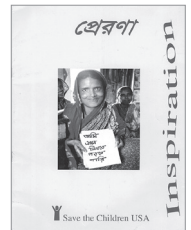 প্রেরণা
Inspiration
আমি
এখন
লিখতে
পড়তে
পারি
Save the Children USA